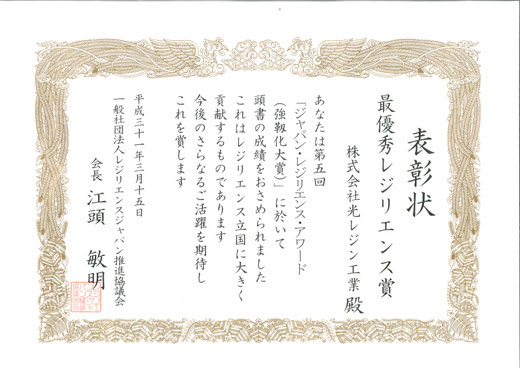 表彰状
最優秀レジリエンス賞
株式会社光レジン工業 殿
あなたは第五回
「ジャパン・レジリエンス・アワード
(強靱化大賞)」に於いて
頭書の成績をおさめられました
これはレジリエンス立国に大きく
貢献するものであります
今後のさらなるご活躍を期待し
これを賞します
平成三十一年三月十五日
一般社団法人レジリエンスジャパン推進協議会
会長 江頭 敏明